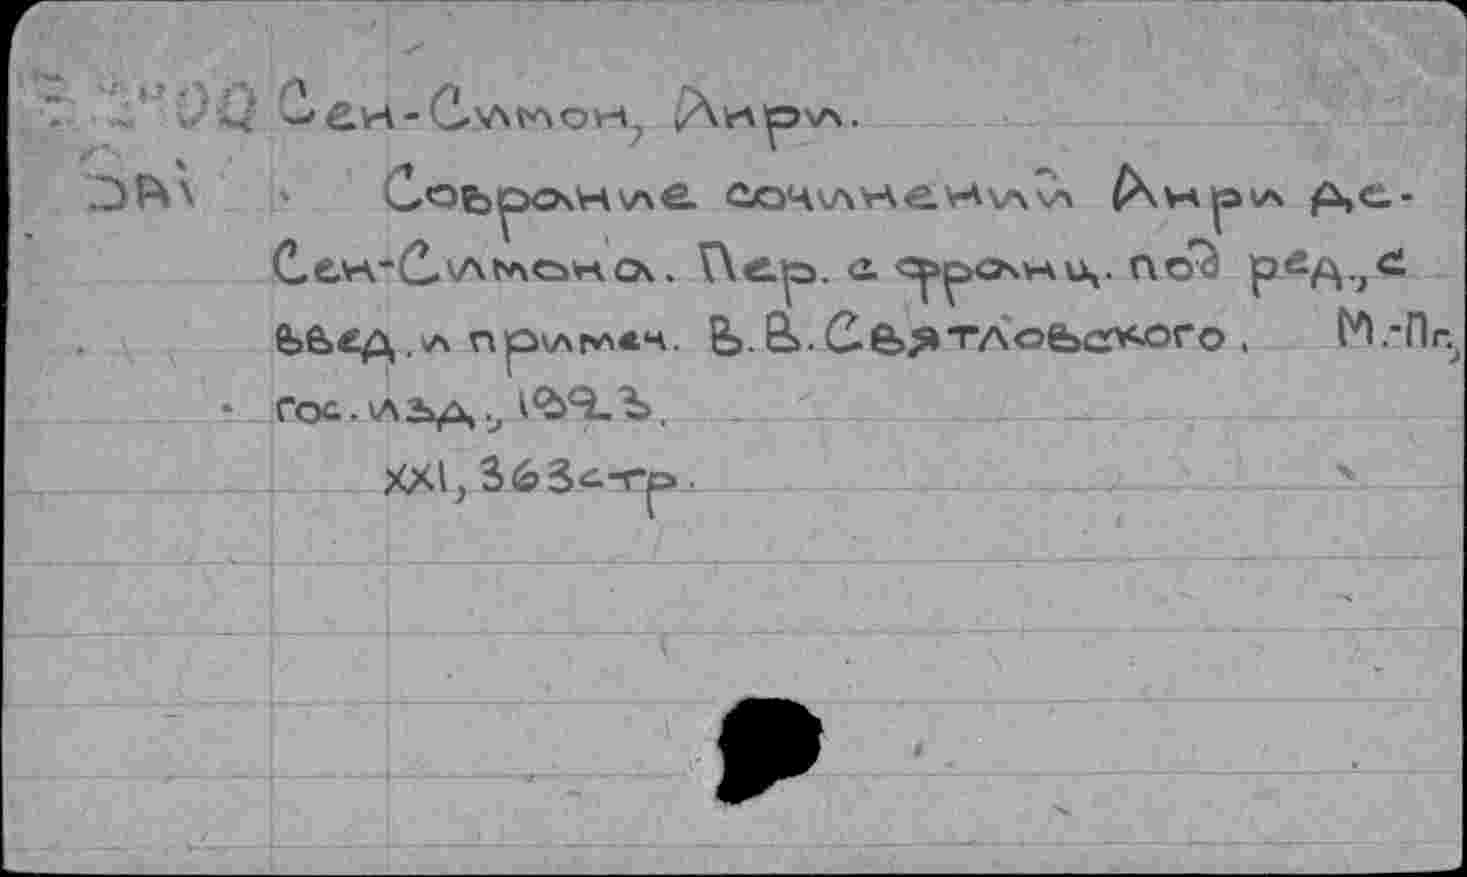 Сен-Симон, Анри.
Собрание сочинений Анри де-
Сен-Симона. Пер. с франц. под ред., с
введ. и примеч. В.В. Святловского, М.-Пг.,
Гос. изд., 1923.
XXI, 363 стр.